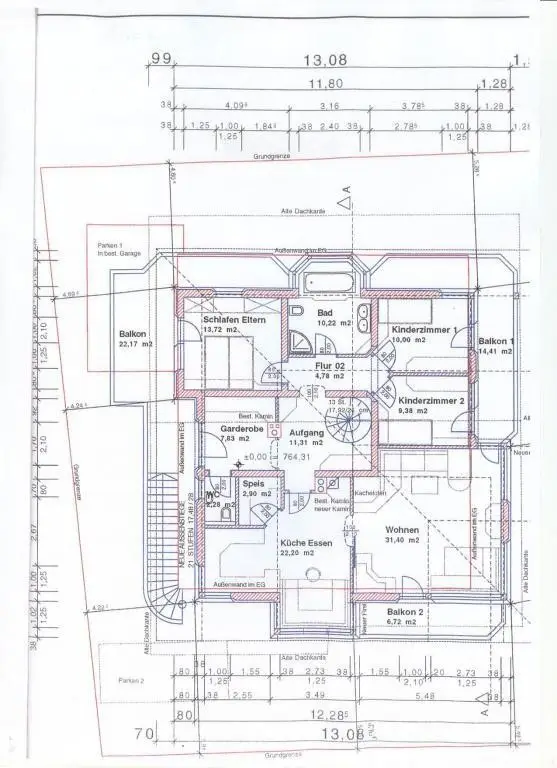 99 13,08 1,
11,80 1,28
38 4,09⁵ 3,16 3,78⁵ 38 1,28
38 1,25 1,00 1,84⁵ 38 2,40 38 2,78⁵ 1,00 38 1,28
1,25 1,25
Grundgrenze
4,82⁵
5,28⁵
A
Alte Dachkante
Parken 1
In best. Garage
Außenwand im EG
4,69⁵
Schlafen Eltern
13,72 m2
Bad
10,22 m2
Kinderzimmer 1
10,00 m2
Balkon
22,17 m2
Balkon 1
14,41 m2
Flur 02
4,78 m2
Kinderzimmer 2
9,38 m2
4,24⁵
Best. Kamin
13 St.
Garderobe
7,83 m2
Aufgang
11,31 m2
±0,00 764,31
Grundgrenze
Außenwand im EG
NEUE AUSSENSTIEGE
21 STUFEN 17,48 / 28
Speis
2,90 m2
WC
2,28 m2
Kachelofen
Best. Kamin
neuer Kamin
Wohnen
31,40 m2
Küche Essen
22,20 m2
Außenwand im EG
Außenwand im EG
Alte Dachkante
Neuer First
Balkon 2
6,72 m2
4,22²
Alte Dachkante
Alte Dachkante
Parken 2
38
80 1,00 1,55 38 2,73 38 1,55 1,00 20 2,73 38
1,25 1,25 2,10 1,25
80 38 2,55 3,49 5,48
A
80 12,28⁵
70 13,08
Grundgrenze
2,10
1,25
2,10
80
2,67
1,00
1,25
1,02
1,25
38